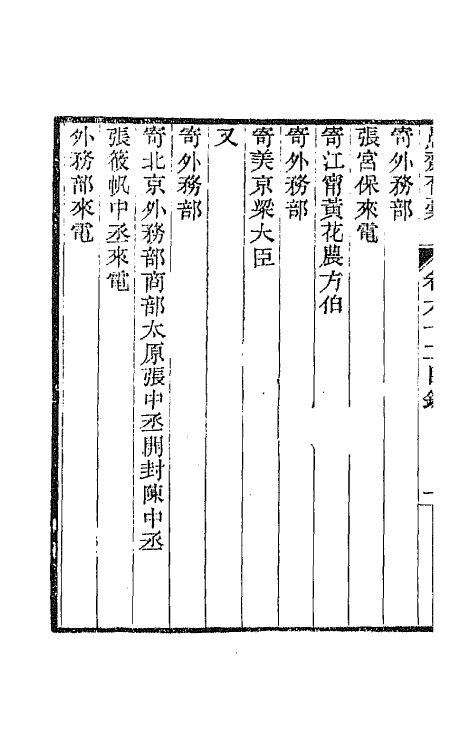 愚齋存稾 卷六十二目錄 一
寄外務部
張宮保來電
寄江甯黃花農方伯
寄外務部
寄美京梁大臣
又
寄外務部
寄北京外務部商部太原張中丞開封陳中丞
張筱帆中丞來電
外務部來電